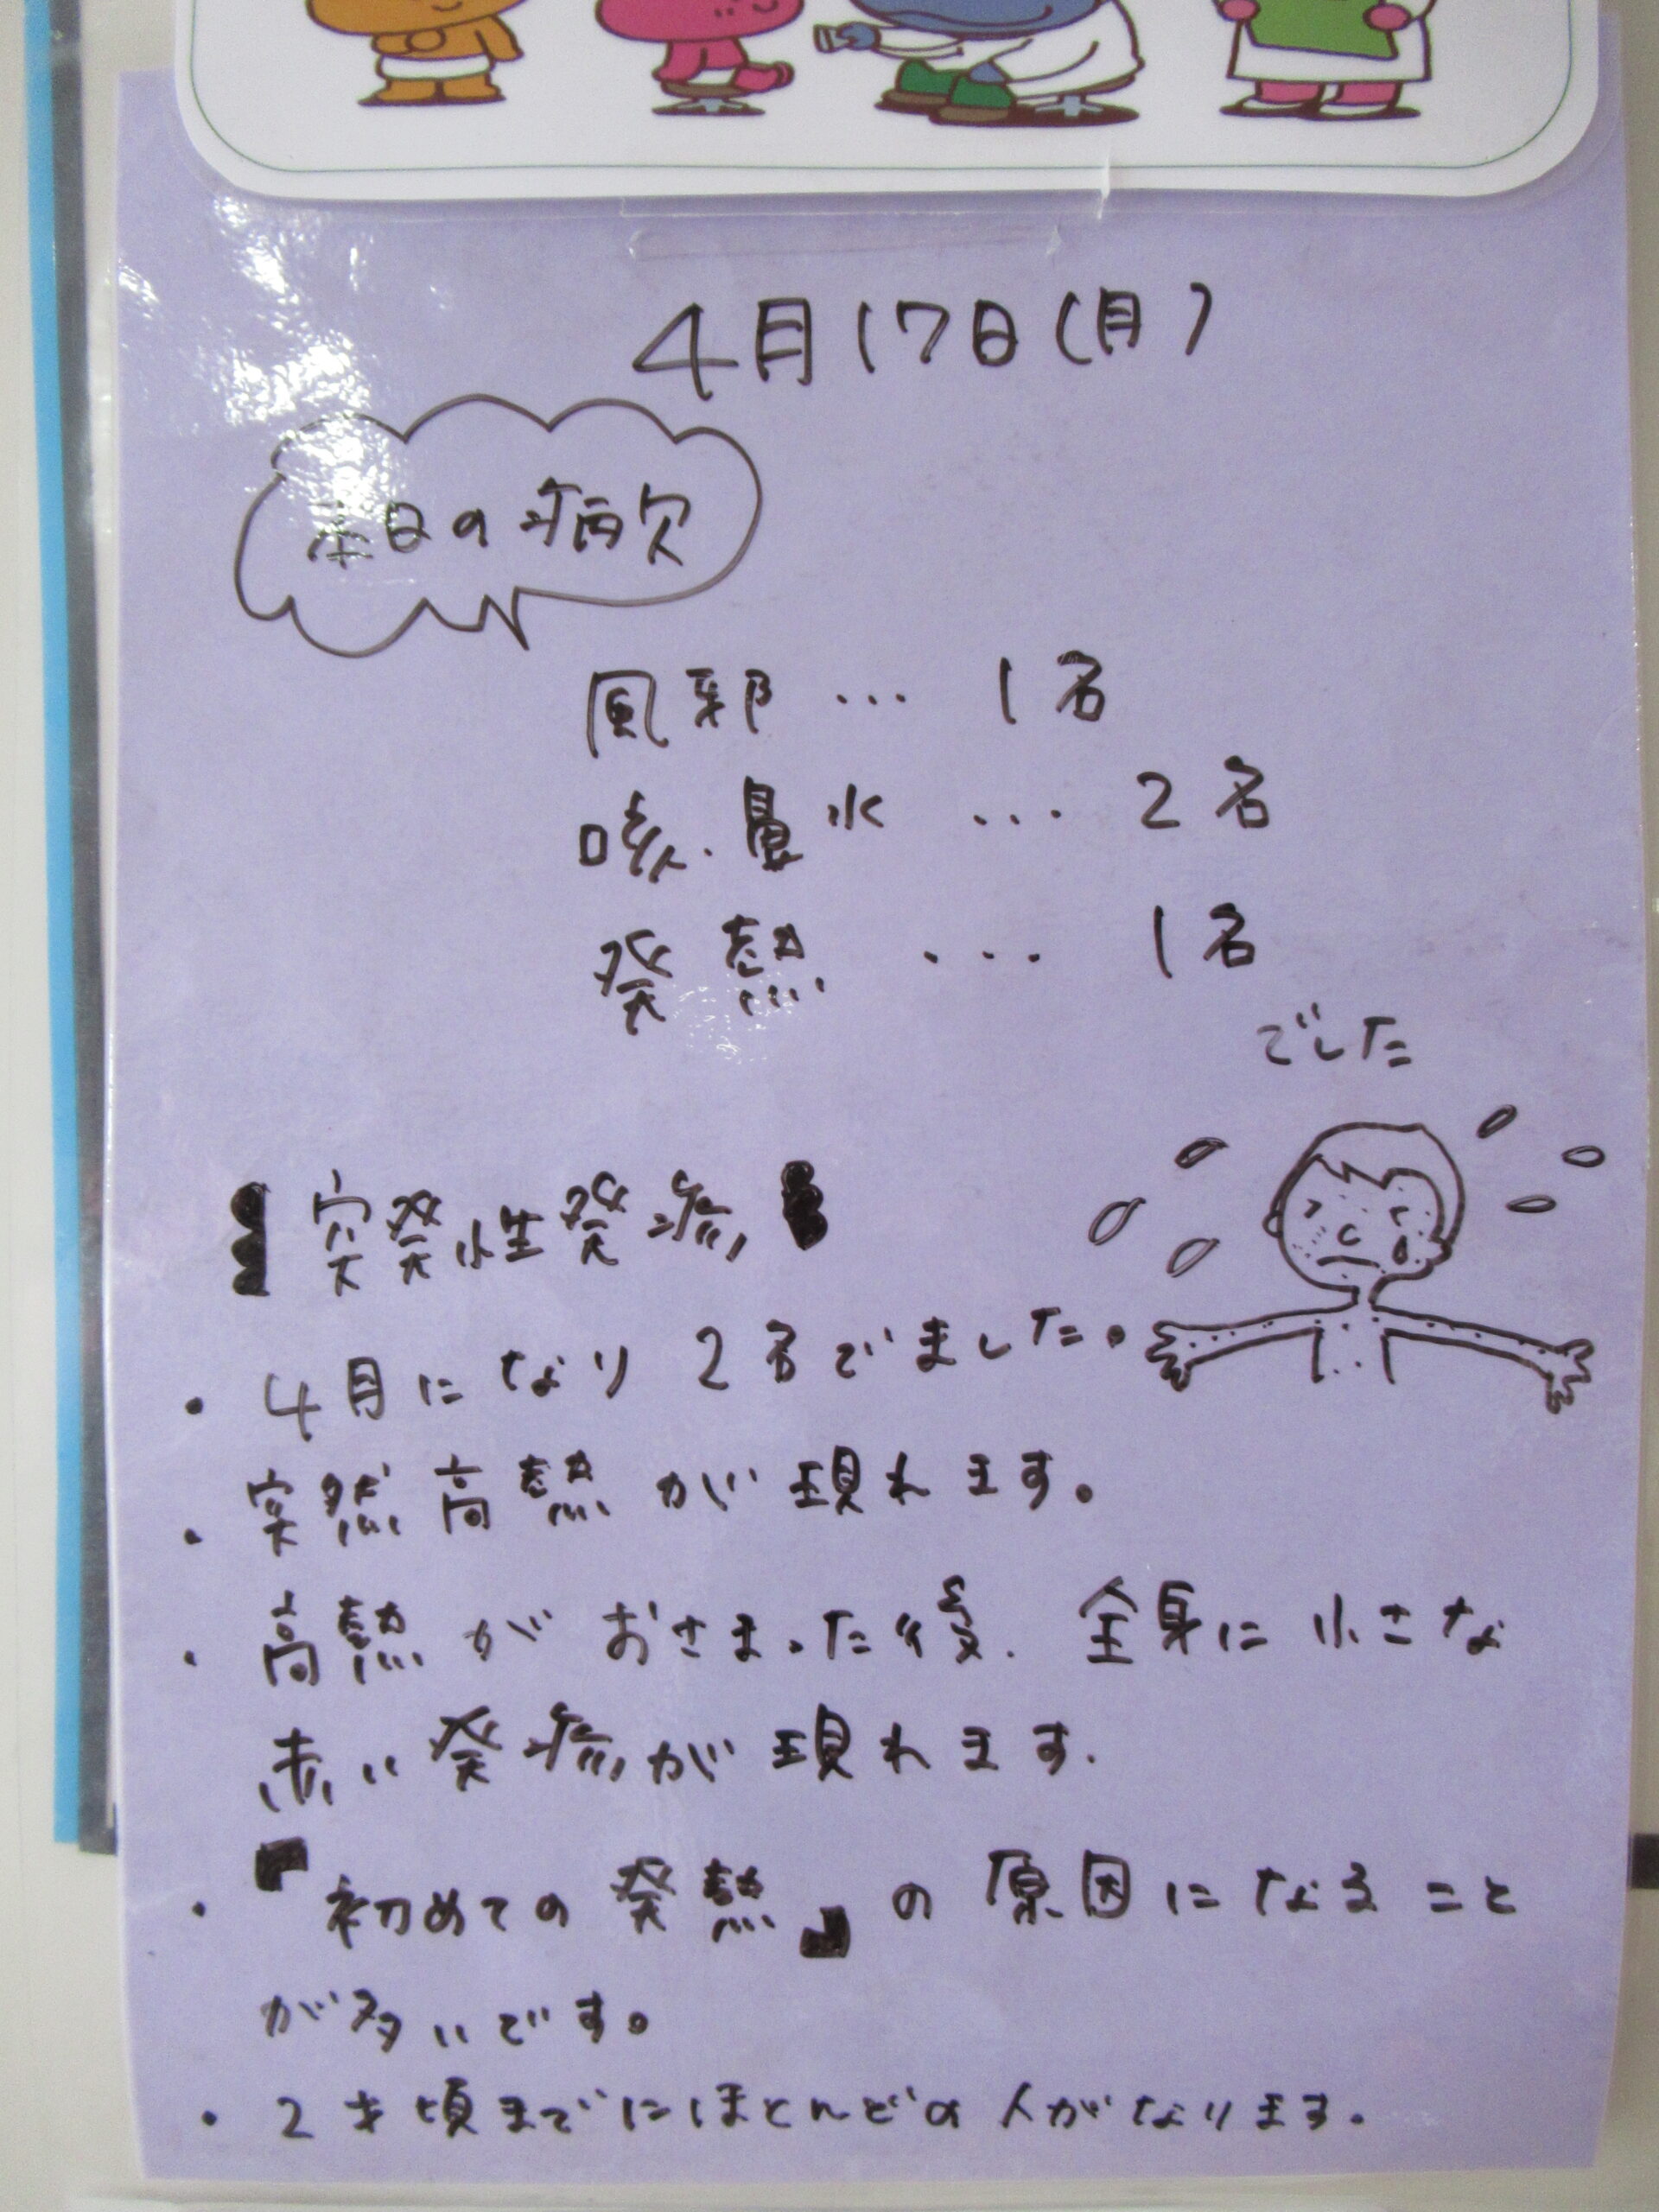 4月17日(月)
本日の病欠
風邪 … 1名
咳・鼻水 … 2名
発熱 … 1名
でした
【突発性発疹】
・4月になり2名でました。
・突然高熱が現れます。
・高熱がおさまった後、全身に小さな
赤い発疹が現れます。
・『初めての発熱』の原因になること
が多いです。
・2才頃までにほとんどの人がなります。